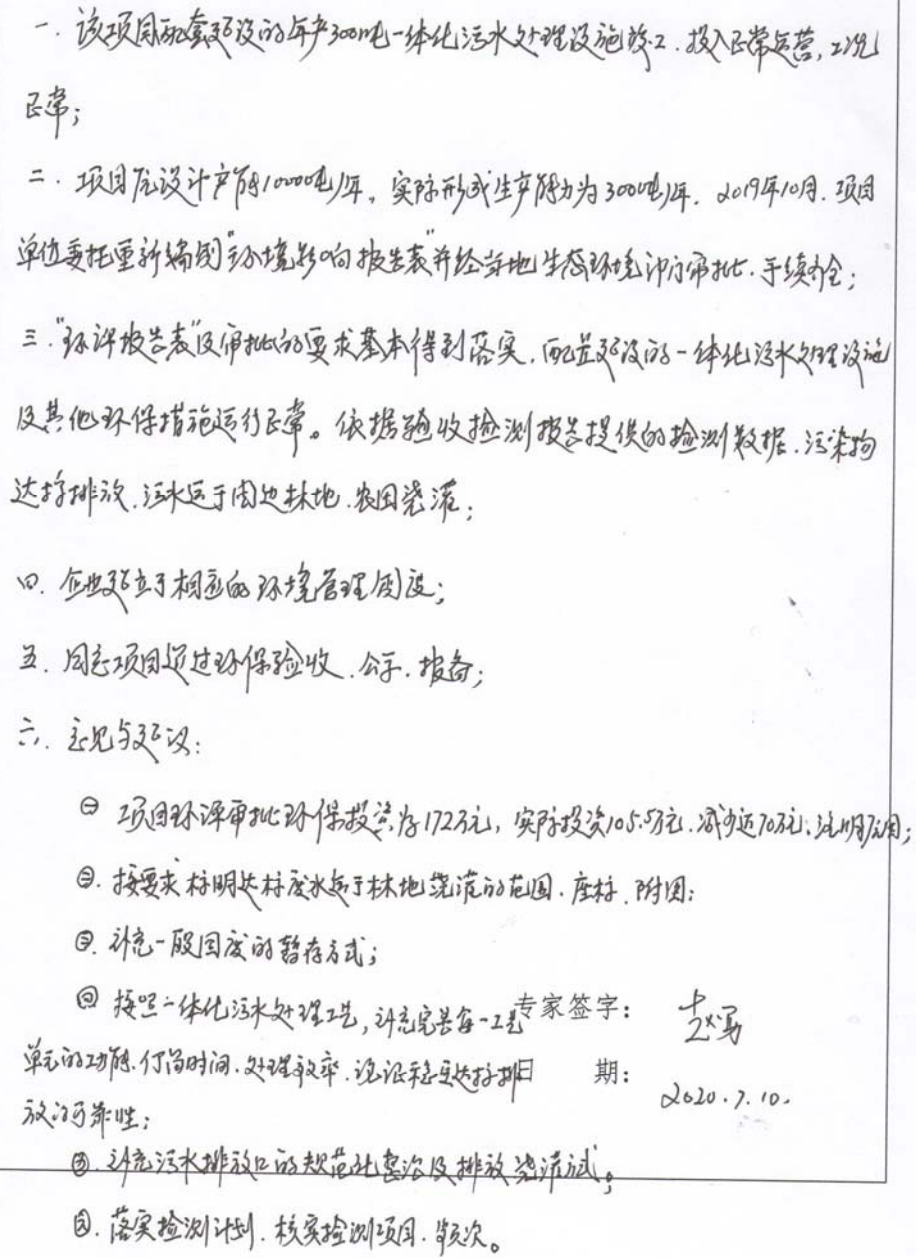 一.该项目配套建设的年产3000吨一体化污水处理设施竣工.投入正常运营,工况
正常;
二.项目原设计产能10000吨/年,实际形成生产能力为3000吨/年.2019年10月.项目
单位委托重新编制"环境影响报告表"并经当地生态环境部门审批.手续齐全;
三."环评报告表"及审批的要求基本得到落实.配置建设的一体化污水处理设施
及其他环保措施运行正常。依据验收检测报告提供的检测数据.污染物
达标排放.污水运于周边林地.农田浇灌;
四.企业建立了相应的环境管理制度;
五.同意项目通过环保验收.公示.报备;
六.意见与建议:
㊀项目环评审批环保投资为172万元,实际投资105.5万元.减少近70万元;注明原因;
㊁.按要求标明达标废水运于林地浇灌的范围.座标.附图;
㊂.补充一般固废的暂存方式;
㊃按照一体化污水处理工艺,补充完善每一工艺
专家签字:
单元的功能.停留时间.处理效率.论证稳定达标排
日 期:
2020.7.10.
放的可靠性;
㊄.补充污水排放口的规范化整治及排放浇灌方式;
㊅.落实检测计划.核实检测项目.频次。